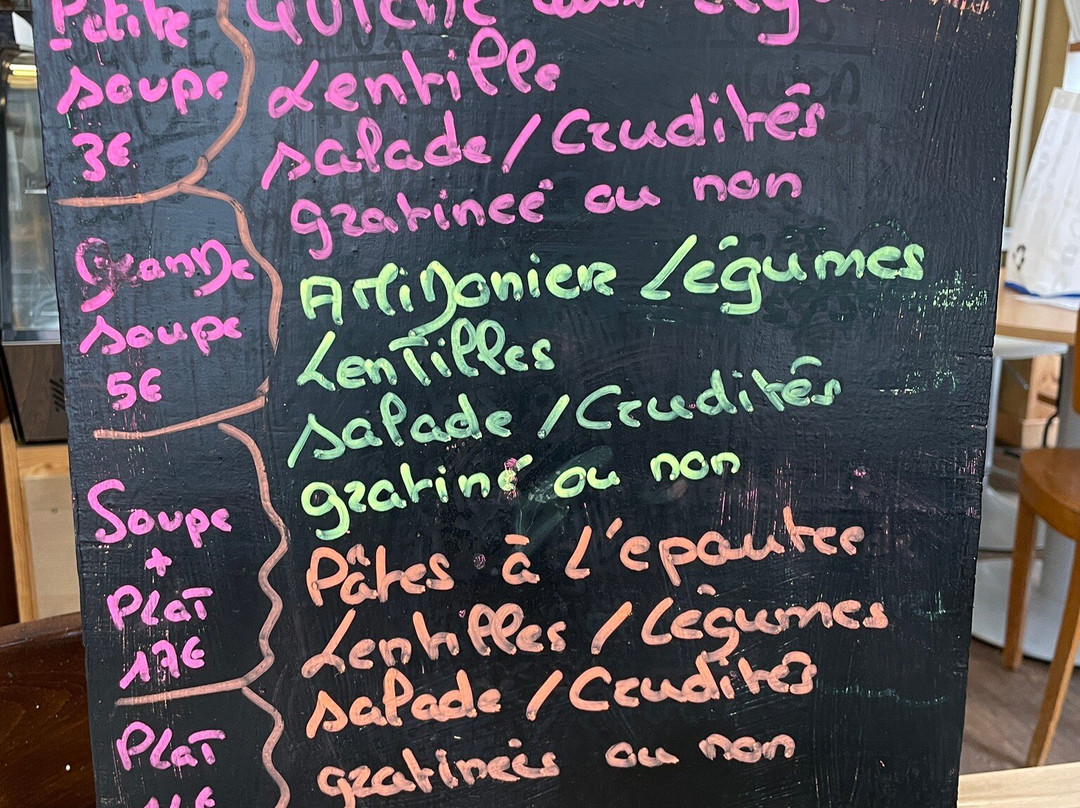 Petite
soupe
3€
Grande
soupe
5€
Soupe
+
Plat
17€
Plat
Quiche aux
Lentille
salade / Crudités
gratineé ou non
AMiDonier Légumes
Lentilles
salade / Crudités
gratiné ou non
Pâtes à l'epautre
Lentilles / Légumes
salade / Crudités
gratineés ou non